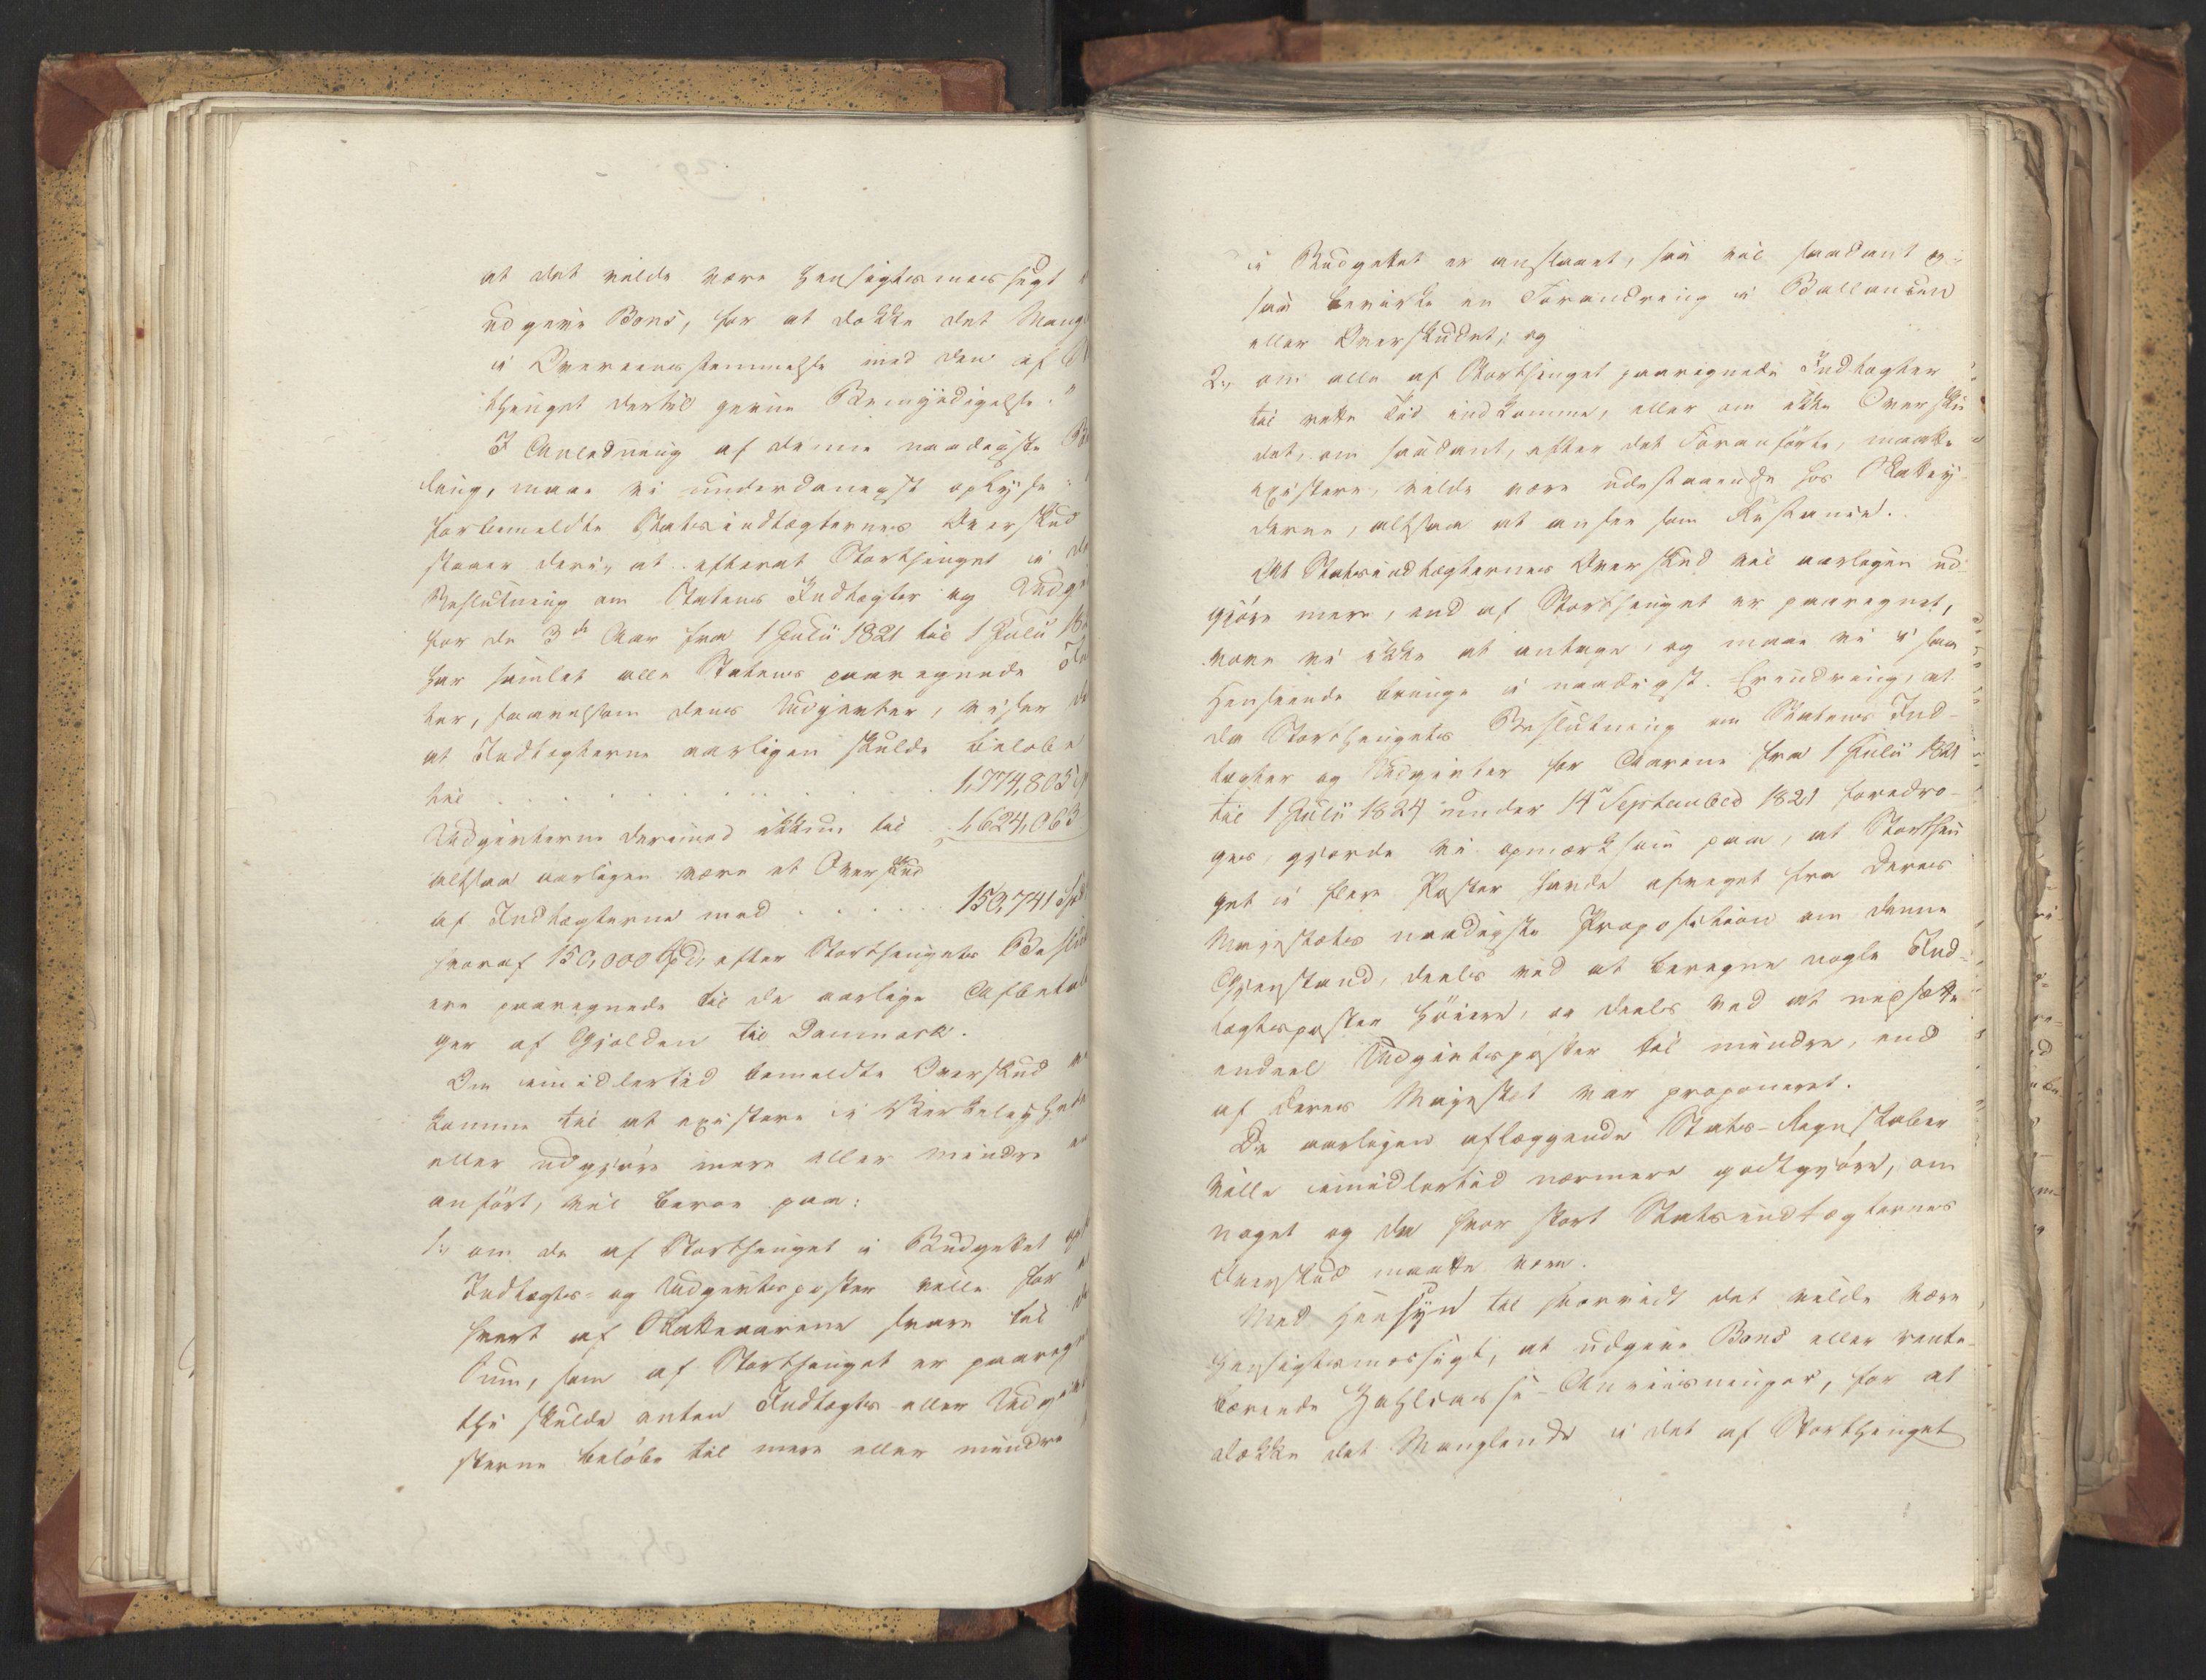 at det vilde være hensigtsmæssigt
udgive Bons, for at dække det Mang
i Overeensstemmelse med den af
thinget dertil givne Bemyndigelse."
I Anledning af denne naadigste
ling, maae vi underdanigst oplyse:
forbemeldte Statsindtægternes Overskud
staaer deri, at efterat Storthinget i
Beslutning om Statens Indtægter og Udgi
for de 3de Aar fra 1 Julii 1821 til 1 Julii
har samlet alle Statens paaregnede
ter, saavelsom dens Udgivter, viser
at Indtægterne aarligen skulde beløbe
til . . . . . . . . . . . 1,774,805
Udgivterne derimod ikkun til 1,624,063
altsaa aarligen være et Overskud
af Indtægterne med . . . . . . 150,741 Spd
hvoraf 150,000 Spd, efter Storthingets Beslut
ere paaregnede til de aarlige Afbetal
ger af Gjælden til Danmark.
Om imidlertid bemeldte Overskud
komme til at existere i Virkelighed
eller udgjøre mere eller mindre
anført, vil beroe paa:
1., om de af Storthinget i Budgettet
Indtægts- og Udgivtsposter ville for
hvert af Skatteaarene svare til
Sum, som af Storthinget er paaregn
thi skulde enten Indtægts- eller Udgivt
sterne beløbe til mere eller mindre
i Budgettet er anslaaet, saa vil saadant og-
saa bevirke en Forandring i Ballancen
eller Overskudet; og
2., om alle af Storthinget paaregnede Indtægter
til rette Tid indkomme, eller om ikke Oversku
det, om saadant, efter det Foranførte, maatte
existere, vilde være udestaaende hos Skattey-
derne, altsaa at ansee som Restance.
At Statsindtægternes Overskud vil aarligen ud-
gjøre mere, end af Storthinget er paaregnet,
vove vi ikke at antage, og maae vi i saa
Henseende bringe i naadigst Erindring, at
da Storthingets Beslutning om Statens Ind-
tægter og Udgivter for Aarene fra 1 Julii 1821
til 1 Julii 1824 under 14 September 1821 foredro-
ges, gjorde vi opmærksom paa, at Storthin
get i flere Poster havde afveget fra Deres
Majestæts naadigste Proposition om denne
Gjenstand, deels ved at beregne nogle Ind-
tægtsposter høiere, og deels ved at nedsætte
endeel Udgivtsposter til mindre, end
af Deres Majestæt var proponeret.
De aarligen aflæggende Stats-Regnskaber
ville imidlertid nærmere godtgjøre, om
noget og da hvor stort Statsindtægternes
Overskud maatte være.
Med Hensyn til hvorvidt det vilde være
hensigtsmæssigt, at udgive Bons eller rente-
bærende Zahlcasse-Anviisninger, for at
dække det Manglende i det af Storthinget